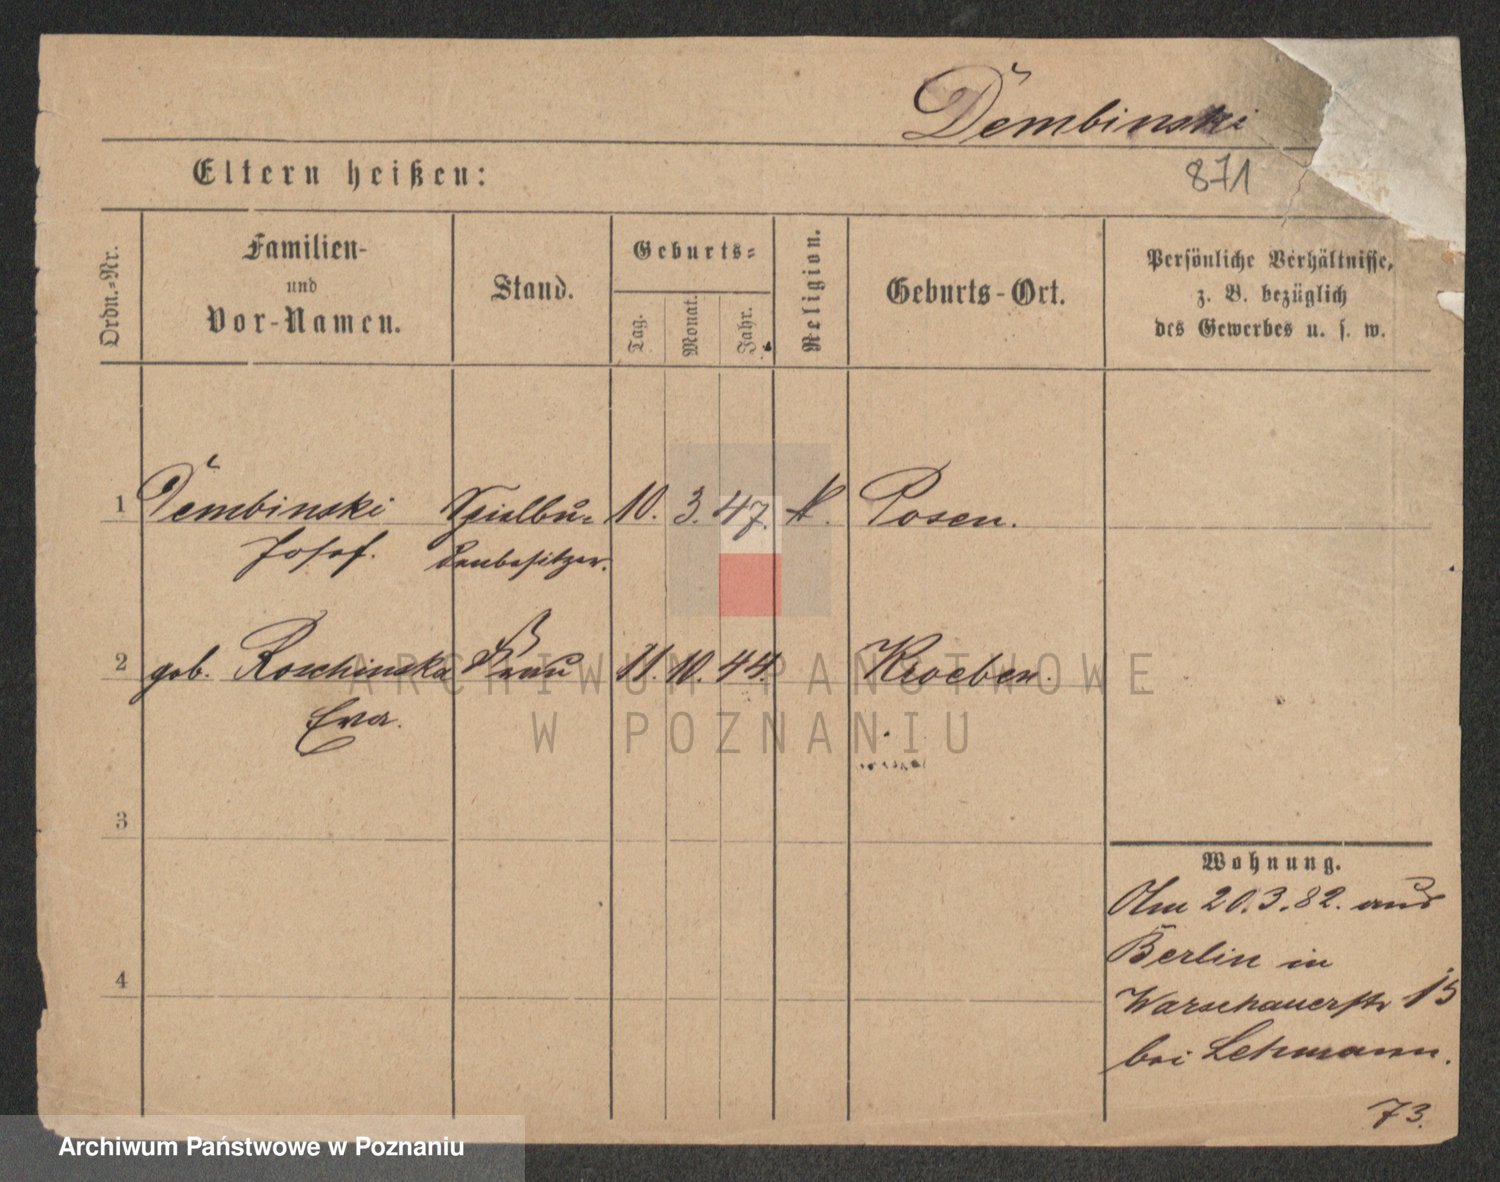 Dembinski
871
Eltern heißen:
Ordn.-Nr.
Familien-
und
Vor-Namen.
Stand.
Geburts-
Tag.
Monat.
Jahr.
Religion.
Geburts-Ort.
Persönliche Verhältnisse,
z. B. bezüglich
des Gewerbes u. s. w.
1 Dembinski Spielbu- 10. 3. 47. k. Posen.
Josef. denbesitzer.
2 geb. Roschinska Frau 11. 10. 44. Kroeben.
Eva.
3
4
Wohnung.
Am 20.3.82. aus
Berlin in
Warschauerstr 15
bei Lehmann.
73.
ARCHIWUM PAŃSTWOWE
W POZNANIU
Archiwum Państwowe w Poznaniu